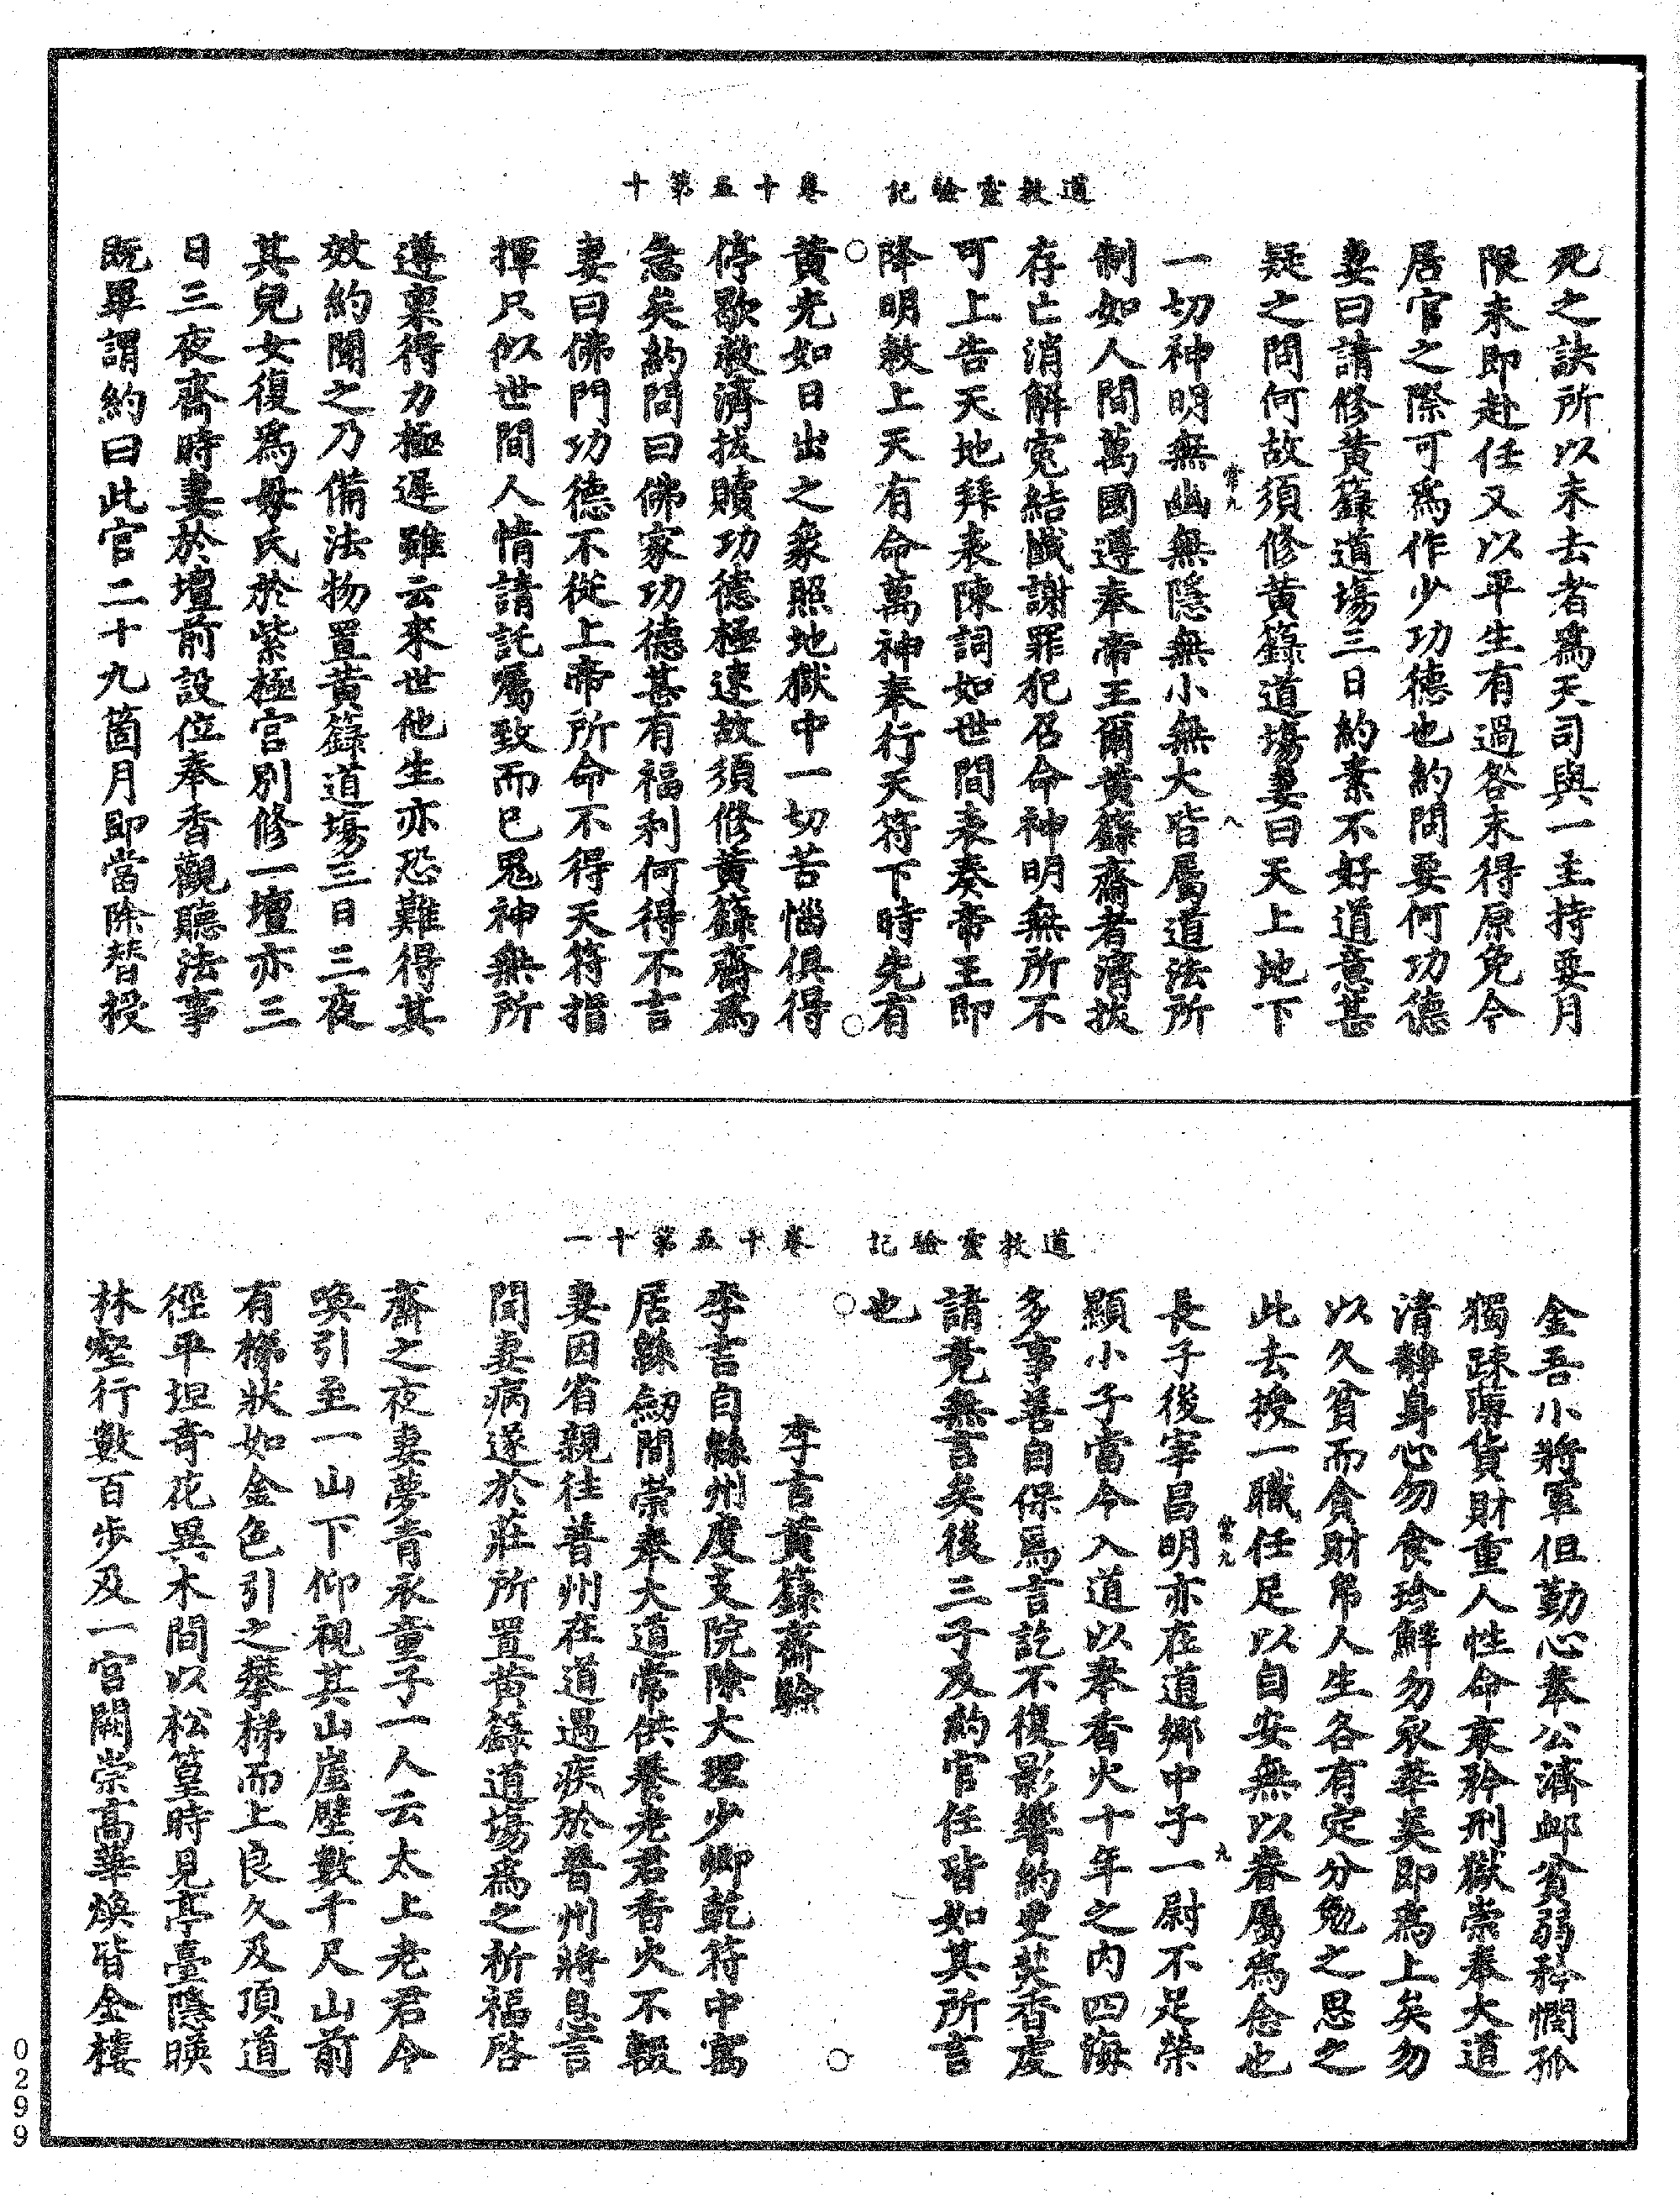 道教靈驗記　卷十五第十
死之訣所以未去者爲天司與一主持要月
限未即赴任又以平生有過咎未得原免今
居官之際可爲作少功德也約問要何功德
妻曰請修黃籙道場三日約素不好道意甚
疑之問何故須修黃籙道場妻曰天上地下
一切神明無幽無隱無小無大皆屬道法所
制如人間萬國遵奉帝王爾黃籙齋者濟拔
存亡消解寃結懺謝罪犯召命神明無所不
可上告天地拜表陳詞如世間表奏帝王即
降明敕上天有命萬神奉行天符下時先有
黃光如日出之象照地獄中一切苦惱俱得
停歇救濟拔贖功德極速故須修黃籙齋爲
急矣約問曰佛家功德甚有福利何得不言
妻曰佛門功德不從上帝所命不得天符指
揮只似世間人情請託囑致而已鬼神無所
遵稟得力極遲雖云來世他生亦恐難得其
效約聞之乃備法物置黃籙道場三日三夜
其兒女復爲母氏於紫極宮別修一壇亦三
日三夜齋時妻於壇前設位奉香觀聽法事
既畢謂約曰此官二十九箇月即當除替授
道教靈驗記　卷十五第十一
金吾小將軍但勤心奉公濟卹貧弱矜憫孤
獨踈薄貨財重人性命哀矜刑獄崇奉大道
清靜身心勿食珍鮮勿衣華美即爲上矣勿
以久貧而貪財帛人生各有定分勉之思之
此去授一職任足以自安無以眷屬爲念也
長子後宰昌明亦在道鄉中子一尉不足榮
顯小子當今入道以奉香火十年之內四海
多事善自保爲言訖不復影響約更焚香虔
請竟無言矣後三子及約官任皆如其所言
也
李言黃籙齋驗
李言自緜州度支院除大理少卿乾符中寓
居緜劒間崇奉大道常供養老君香火不輟
妻因省親往普州在道遇疾於晉州將息言
聞妻病遂於莊所置黃籙道場爲之祈福啓
齋之夜妻夢青衣童子一人云太上老君令
喚引至一山下仰視其山崖壁數千尺山前
有梯狀如金色引之攀梯而上良久及頂道
徑平坦奇花異木間以松篁時見亭臺隱暎
林壑行數百步及一宮闕崇高華煥皆金樓
0299